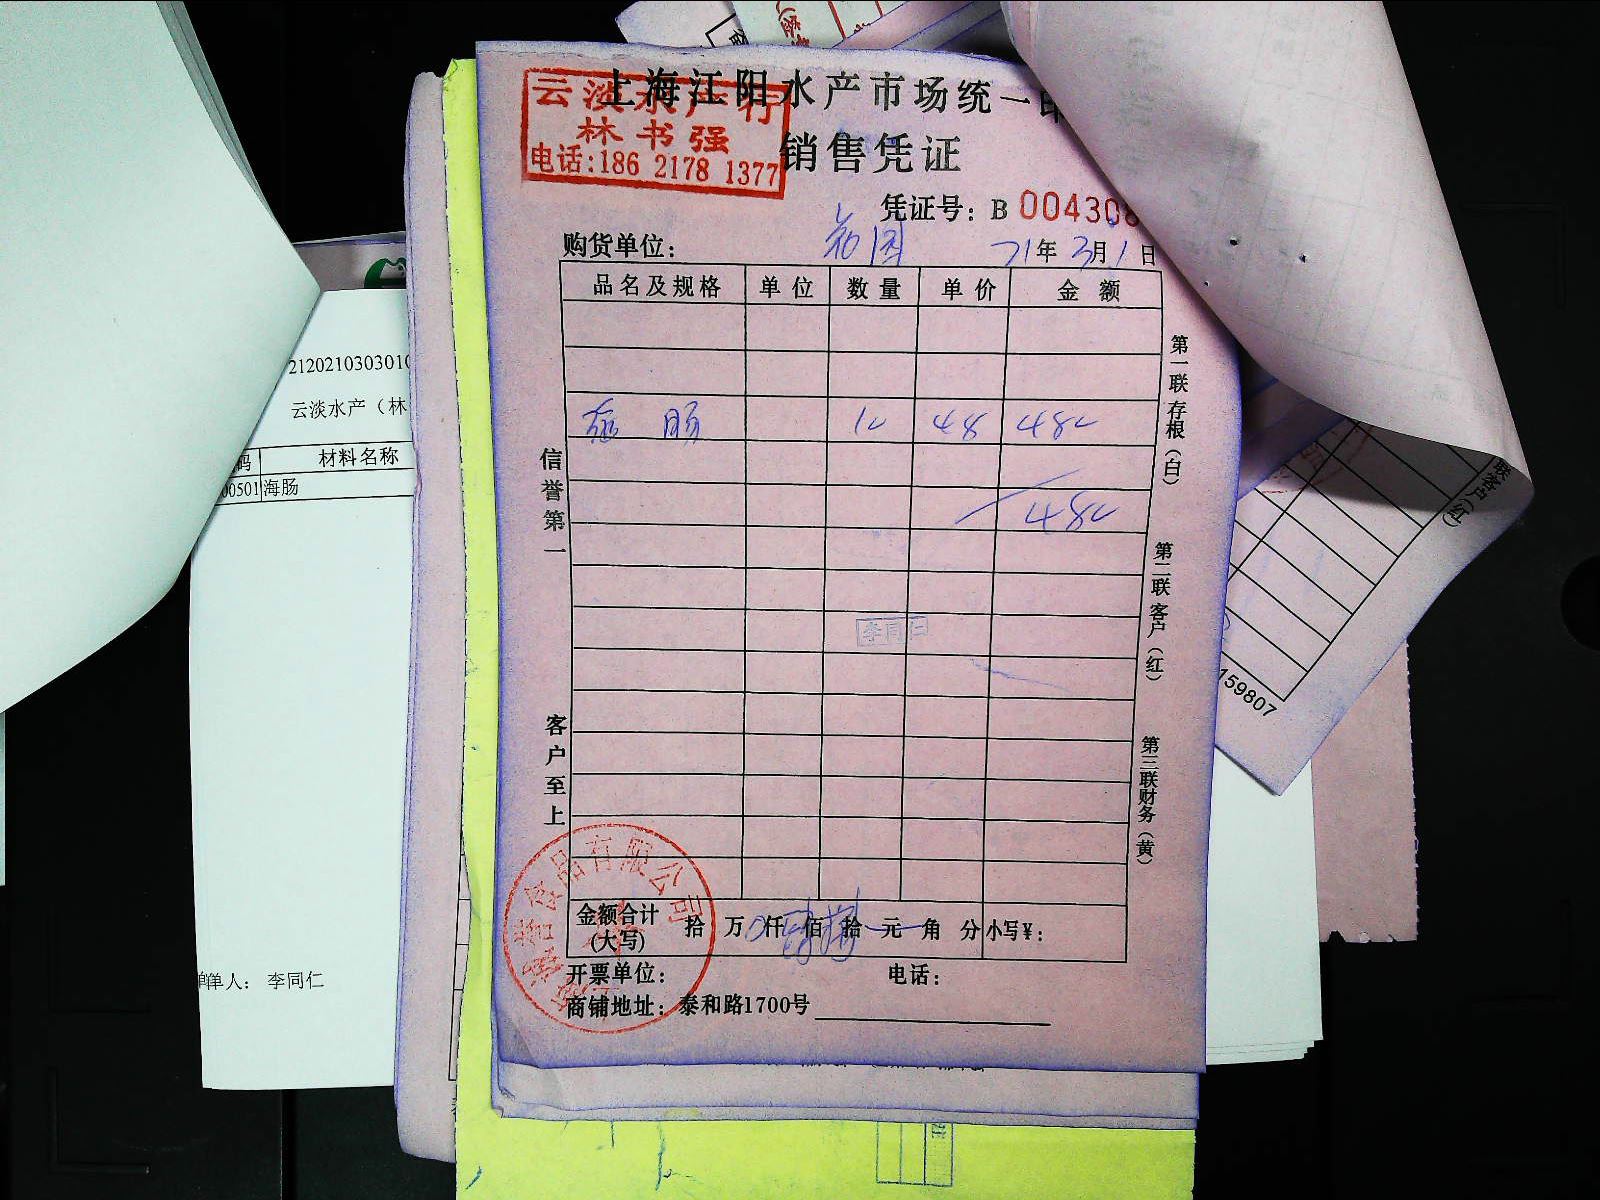 上海江阳水产市场统一
云淡水产行
林书强
电话:186 2178 1377
销售凭证
凭证号: B 004308
购货单位:
21年 3月 1日
品名及规格 单位 数量 单价 金额
肠 48
信誉第一
客户至上
第一联存根(白)
第二联客户(红)
第三联财务(黄)
李同仁
食品有限公司
金额合计(大写) 拾 万 仟 佰 拾 元 角 分 小写¥:
开票单位: 电话:
商铺地址: 泰和路1700号
2120210303010
云淡水产（林
码 材料名称
00501 海肠
单人: 李同仁
联客户(红)
159807